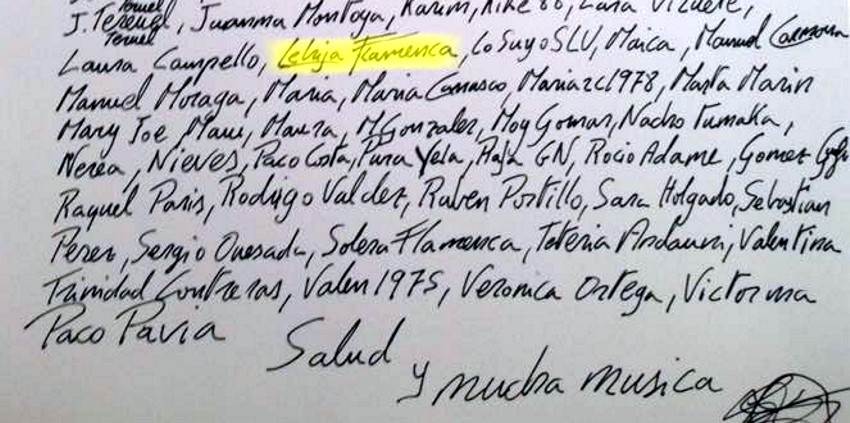 J. Teruel, Juanma Montoya, Karim, Kike 80, Lara Vizuete,
Teruel
Laura Campello, Lebrija Flamenca, LoSuyoSLU, Maica, Manuel Carmona
Manuel Moraga, Maria, Maria Carrasco, Mariazc1978, Marta Marin
Mary Joe, Mawi, Maura, MGonzalez, Moy Gomar, Nacho Tumaka,
Nerea, Nieves, Paco Costa, Pura Yela, GN, Rocio Adame, Gomez
Raquel Paris, Rodrigo Valdez, Ruben Portillo, Sara Holgado, Sebastian
Perez, Sergio Quesada, Solera Flamenca, Teteria, Valentina
Trinidad Contreras, Valen 1975, Veronica Ortega, Victor
Paco Pavia
Salud
y mucha musica